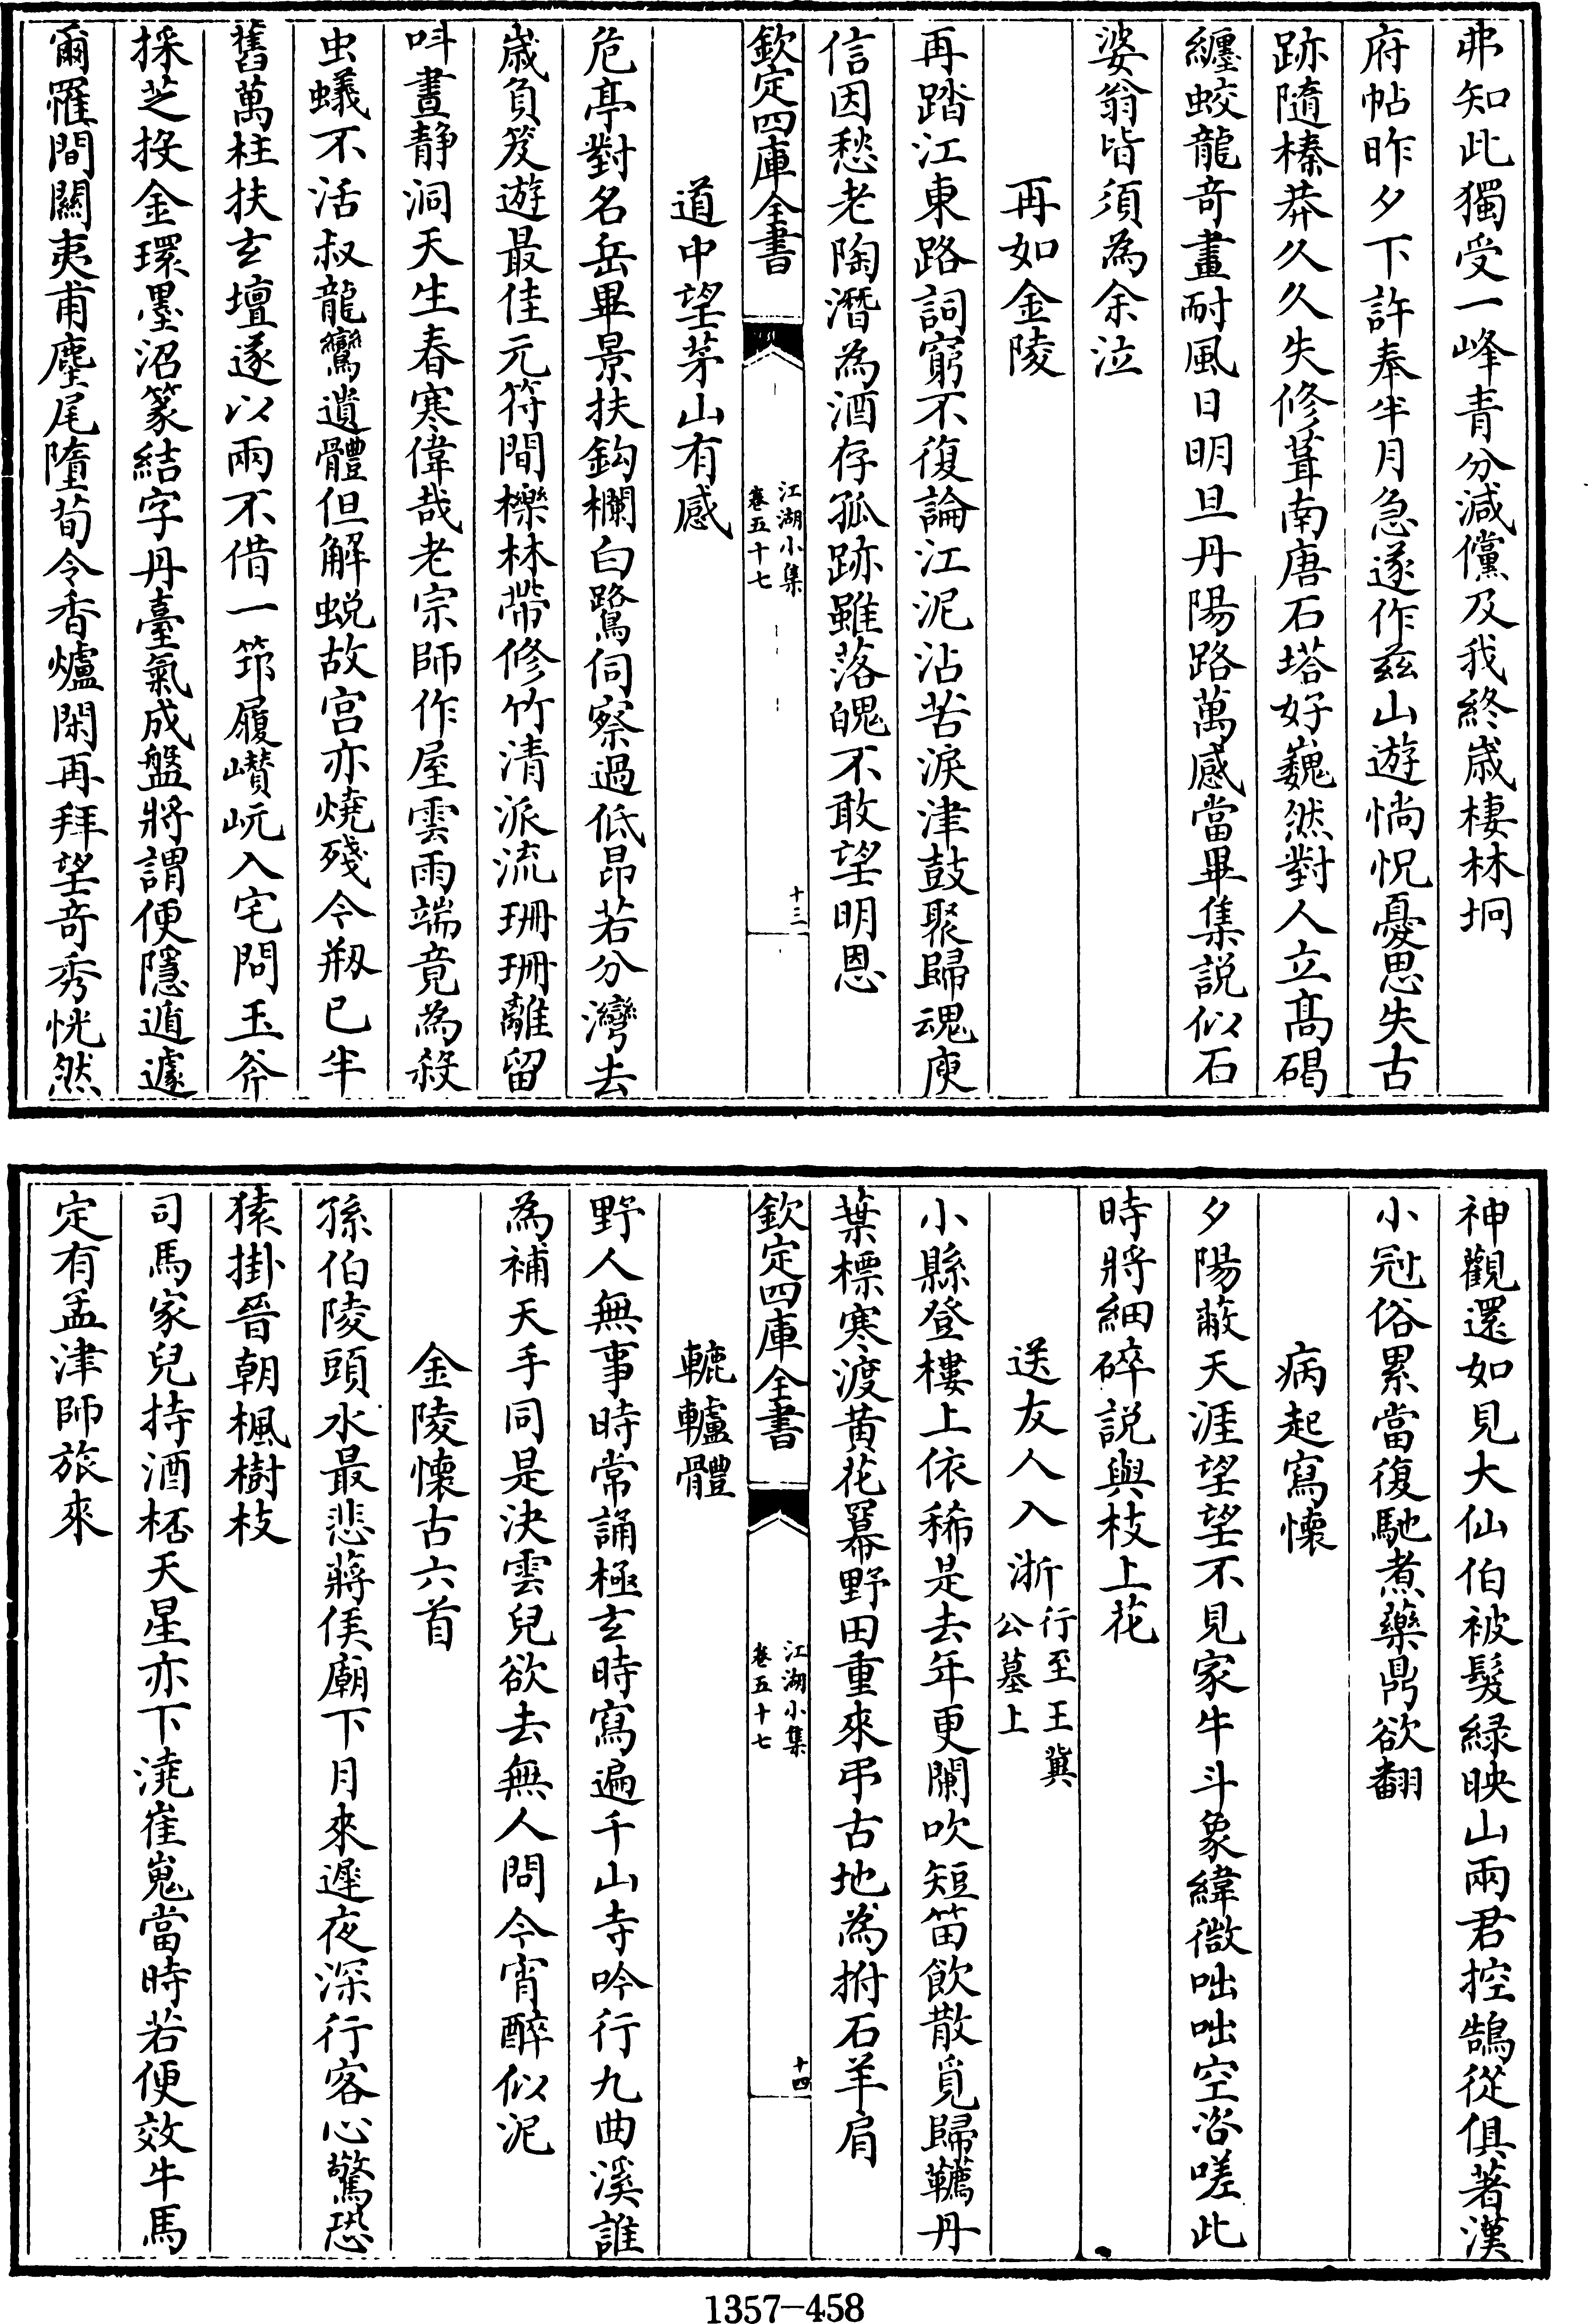 弗知此獨受一峰青分減儻及我終歲棲林坰
府帖昨夕下許奉半月急遂作兹山遊惝怳憂思失古
跡隨榛莽久久失修葺南唐石塔好巍然對人立髙碣
纏蛟龍竒畫耐風日明旦丹陽路萬感當畢集説似石
婆翁皆須為余泣
再如金陵
再踏江東路詞窮不復論江泥沾苦淚津鼓聚歸魂庾
信因愁老陶潛為酒存孤跡雖落魄不敢望明恩
欽定四庫全書
江湖小集
卷五十七
十三
道中望茅山有感
危亭對名岳畢景扶鈎欄白鷺伺察過低昂若分灣去
歲負笈遊最佳元符間櫟林帶修竹清派流珊珊離留
呌晝静洞天生春寒偉哉老宗師作屋雲雨端竟為殺
虫蟻不活叔龍鸞遺體但解蜕故宫亦燒殘今剏已半
舊萬柱扶玄壇遂以兩不借一笻履巑岏入宅問玉斧
採芝投金環墨沼篆結字丹臺氣成盤將謂便隱遁遽
爾罹間關夷甫麈尾墮荀令香爐閑再拜望竒秀恍然
神觀還如見大仙伯被髮緑映山兩君控鵠從俱著漢
小冠俗累當復馳煮藥鼎欲翻
病起寫懷
夕陽蔽天涯望望不見家牛斗象緯微咄咄空咨嗟此
時將細碎説與枝上花
送友人入浙行至王冀公墓上
小縣登樓上依稀是去年更闌吹短笛飲散覓歸韉丹
葉標寒渡黄花羃野田重來弔古地為拊石羊肩
欽定四庫全書
江湖小集
卷五十七
十四
轆轤體
野人無事時常誦極玄時寫遍千山寺吟行九曲溪誰
為補天手同是決雲兒欲去無人問今宵醉似泥
金陵懷古六首
孫伯陵頭水最悲蔣侯廟下月來遲夜深行客心驚恐
猿掛晉朝楓樹枝
司馬家兒持酒桮天星亦下澆崔嵬當時若便效牛馬
定有孟津師旅來
1357-458